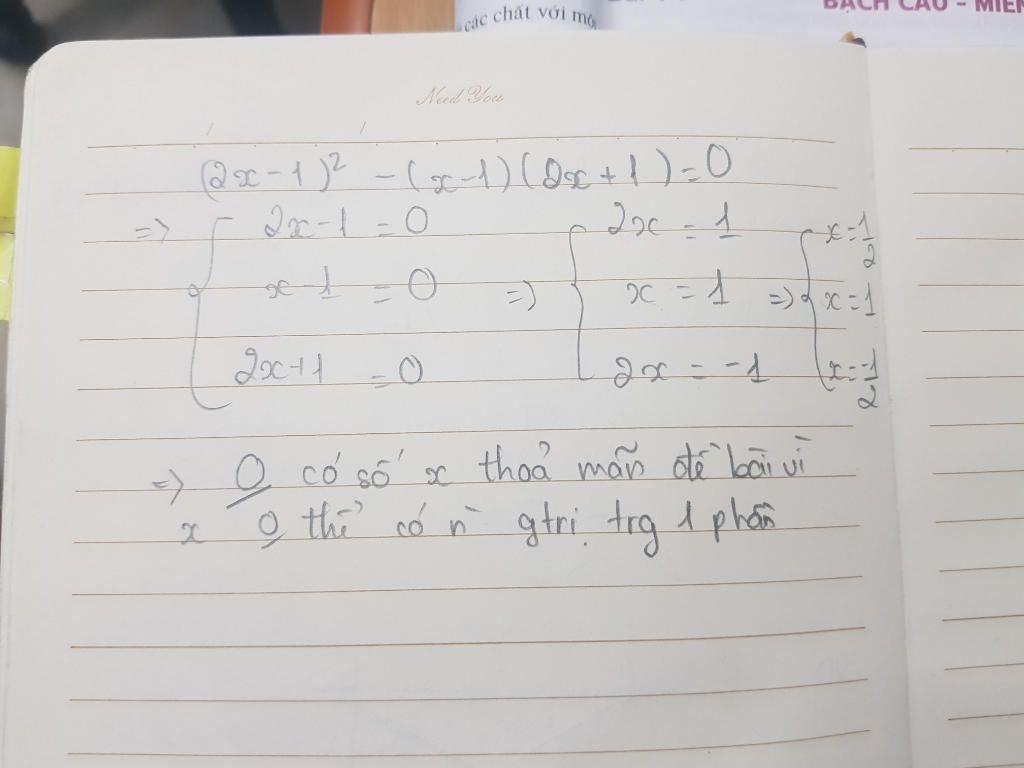 các chất với mô
BẠCH CẦU - MIỄN
Need You
(2x-1)² - (x-1)(2x+1)=0
=> { 2x-1 = 0 { 2x = 1 { x=1/2
x-1 = 0 => x = 1 => x=1
2x+1 = 0 2x = -1 x=-1/2
=> 0 có số x thoả mãn đề bài vì
x 0 thể có n` gtrị trg 1 phần